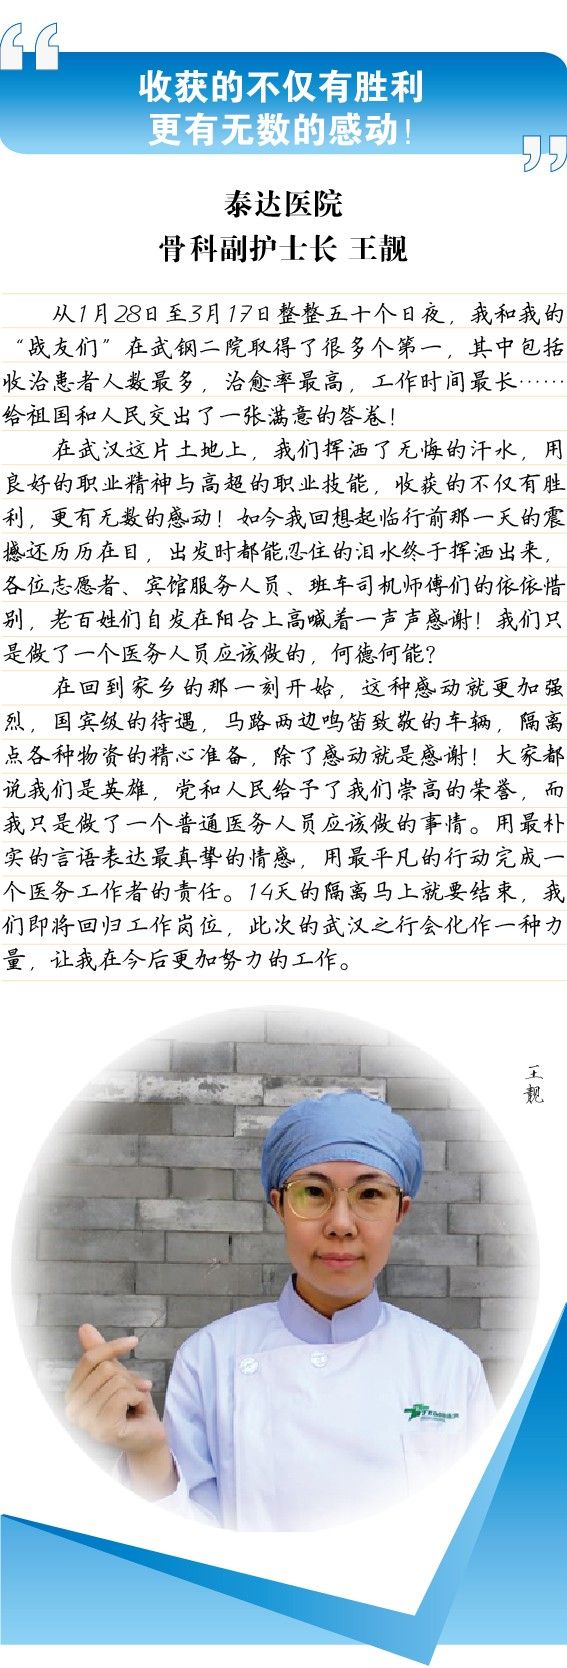 收获的不仅有胜利
更有无数的感动！
泰达医院
骨科副护士长 王靓
从1月28日至3月17日整整五十个日夜，我和我的
“战友们”在武钢二院取得了很多个第一，其中包括
收治患者人数最多，治愈率最高，工作时间最长……
给祖国和人民交出了一张满意的答卷！
在武汉这片土地上，我们挥洒了无悔的汗水，用
良好的职业精神与高超的职业技能，收获的不仅有胜
利，更有无数的感动！如今我回想起临行前那一天的震
撼还历历在目，出发时都能忍住的泪水终于挥洒出来，
各位志愿者、宾馆服务人员、班车司机师傅们的依依惜
别，老百姓们自发在阳台上高喊着一声声感谢！我们只
是做了一个医务人员应该做的，何德何能？
在回到家乡的那一刻开始，这种感动就更加强
烈，国宾级的待遇，马路两边鸣笛致敬的车辆，隔离
点各种物资的精心准备，除了感动就是感谢！大家都
说我们是英雄，党和人民给予了我们崇高的荣誉，而
我只是做了一个普通医务人员应该做的事情。用最朴
实的言语表达最真挚的情感，用最平凡的行动完成一
个医务工作者的责任。14天的隔离马上就要结束，我
们即将回归工作岗位，此次的武汉之行会化作一种力
量，让我在今后更加努力的工作。
王靓